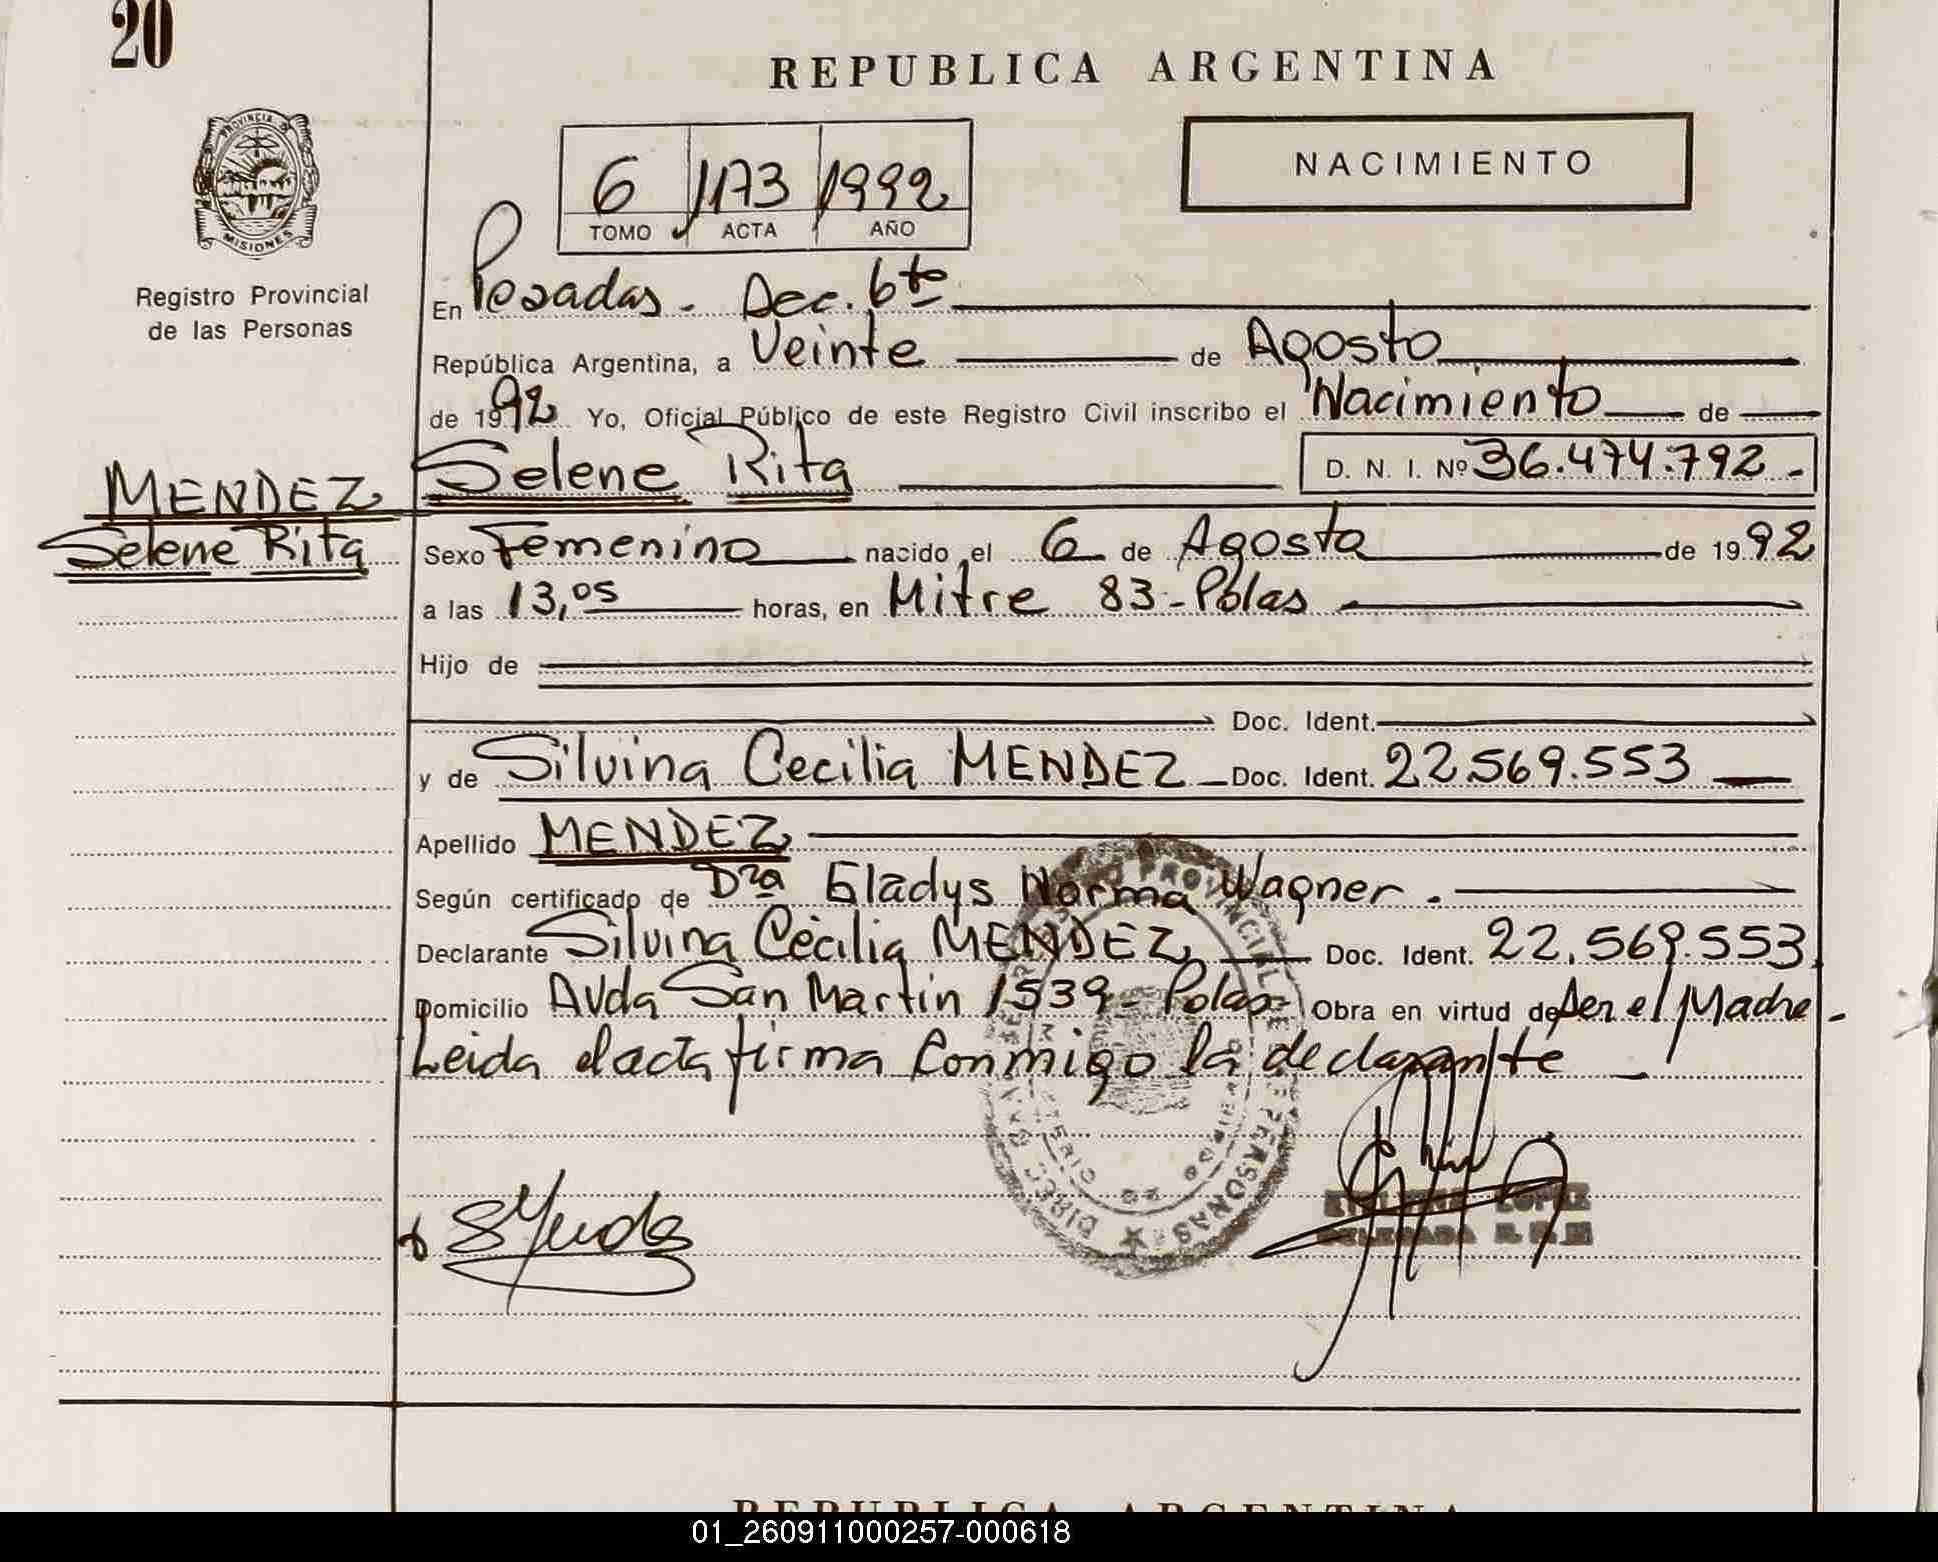 20
REPUBLICA ARGENTINA
PROVINCIA D
MISIONES
6 1173 1992
TOMO ACTA AÑO
NACIMIENTO
Registro Provincial
de las Personas
En Posadas - Dec. 6to
República Argentina, a Veinte de Agosto
de 1992 Yo, Oficial Público de este Registro Civil inscribo el Nacimiento de
Selene Rita D. N. I. Nº 36.474.792.-
MENDEZ
Selene Rita
Sexo Femenino nacido el 6 de Agosto de 1992
a las 13,05 horas, en Mitre 83 - Pdas
Hijo de
Doc. Ident.
y de Silvina Cecilia MENDEZ Doc. Ident. 22.569.553
Apellido MENDEZ
Según certificado de Dra Gladys Norma Wagner.
Declarante Silvina Cecilia MENDEZ Doc. Ident. 22.569.553
Domicilio Avda San Martín 1539 - Pdas - Obra en virtud de Ser el Madre.
Leida el acta firma conmigo la declarante
LOPEZ
REPUBLICA ARGENTINA
01_260911000257-000618